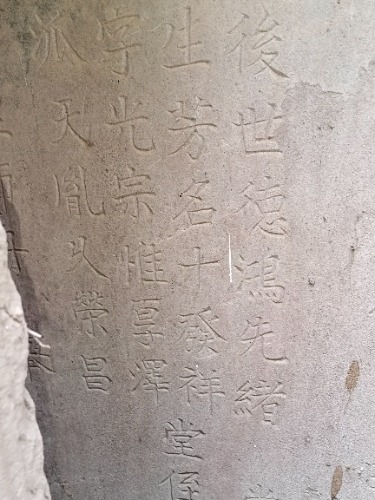 後世德鴻先緒
生芳名十發祥堂侄
字光宗惟厚澤
派天胤久榮昌